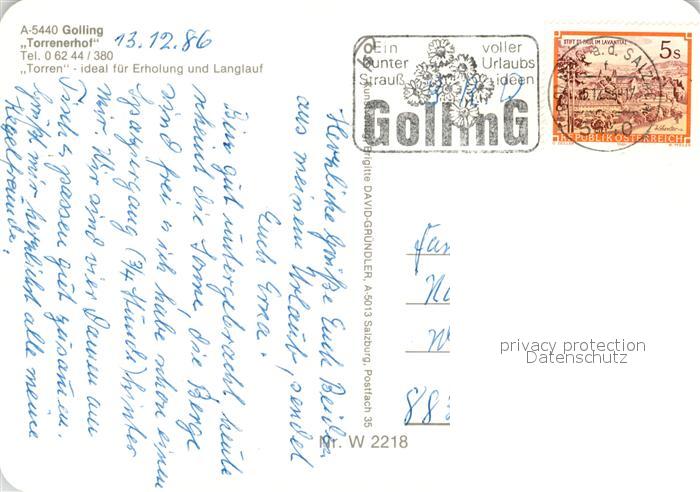 A-5440 Golling
„Torrenerhof“
Tel. 0 62 44 / 380
„Torren“ - ideal für Erholung und Langlauf
13.12.86
Herzliche Grüße Euch Beiden
aus meinem Urlaub, sendet
Euch Erea.
Bin gut untergebracht heute
scheint die Sonne, die Berge
sind frei u. ich habe schon einen
Spaziergang (3/4 Stunde) hinter
mir. Wir sind vier Damen am
Tisch u. passen gut zusammen.
Grüßt mir herzlichst alle meine
Kegelfreunde.
Ein voller
bunter Urlaubs
Strauß ideen
GollinG
STIFT ST. PAUL IM LAVANTTAL
5s
REPUBLIK ÖSTERREICH
Brigitte DAVID-GRÜNDLER, A-5013 Salzburg, Postfach 35
Fa
W
88
Nr. W 2218
privacy protection
Datenschutz